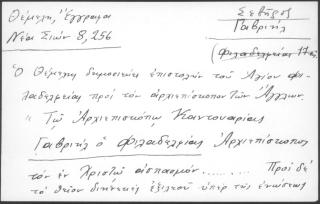 Θέμελη, Έγγραφα
Νέα Σιών 8, 256
Σεβῆρος
Γαβριήλ
Φιλαδελφείας
Ὁ Θέμελης δημοσιεύει ἐπιστολήν τοῦ Ἁγίου Φι-
λαδελφείας πρός τόν ἀρχιεπίσκοπον τῶν Ἄγγλων.
"Τῷ Ἀρχιεπισκόπῳ Καντουαρίας
Γαβριήλ ὁ Φιλαδελφείας Ἀρχιεπίσκοπος
τόν ἐν Χριστῷ ἀσπασμόν........ Πρός δέ
τό θεῖον ὑπέρ τῆς ἑνώσεως